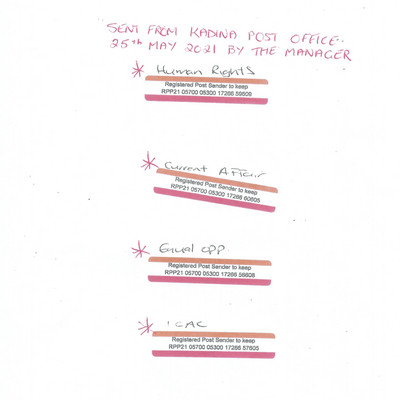 SENT FROM KADINA POST OFFICE.
25th MAY 2021 BY THE MANAGER
* Human Rights
Registered Post Sender to keep
RPP21 05700 05300 17266 59609
* Current Affair
Registered Post Sender to keep
RPP21 05700 05300 17266 60605
* Equal opp
Registered Post Sender to keep
RPP21 05700 05300 17266 58608
* ICAC
Registered Post Sender to keep
RPP21 05700 05300 17266 57605